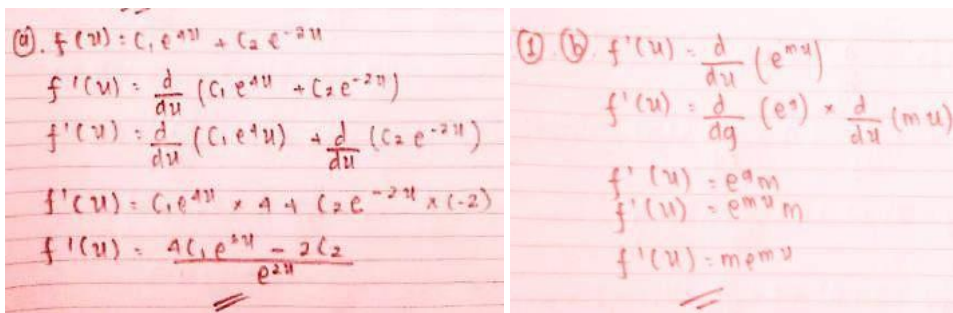 (a). f(x) = C₁e⁴ˣ + C₂e⁻²ˣ
f'(x) = d/dx (C₁e⁴ˣ + C₂e⁻²ˣ)
f'(x) = d/dx (C₁e⁴ˣ) + d/dx (C₂e⁻²ˣ)
f'(x) = C₁e⁴ˣ × 4 + C₂e⁻²ˣ × (-2)
f'(x) = 4C₁e²ˣ - 2C₂ / e²ˣ
(1) (b) f'(x) = d/dx (eᵐˣ)
f'(x) = d/dg (eᵍ) × d/dx (mx)
f'(x) = eᵍm
f'(x) = eᵐˣm
f'(x) = meᵐˣ